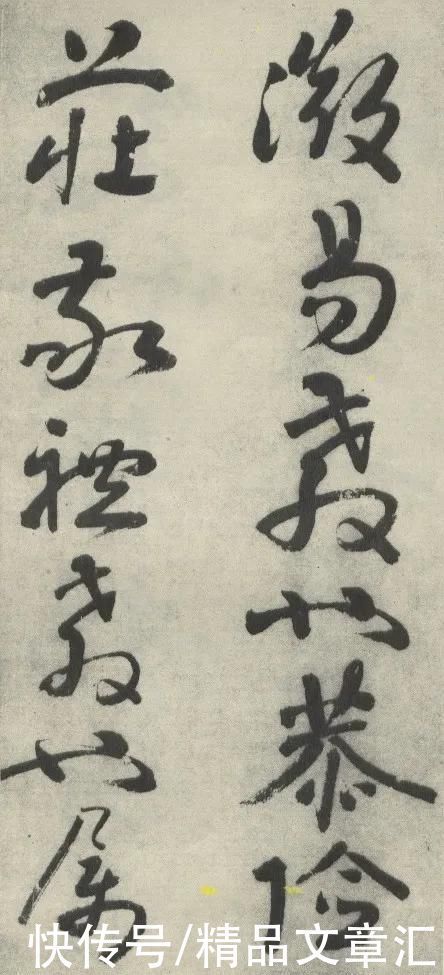 微易教也恭儉
莊敬禮教也屬
快传号/精品文章汇